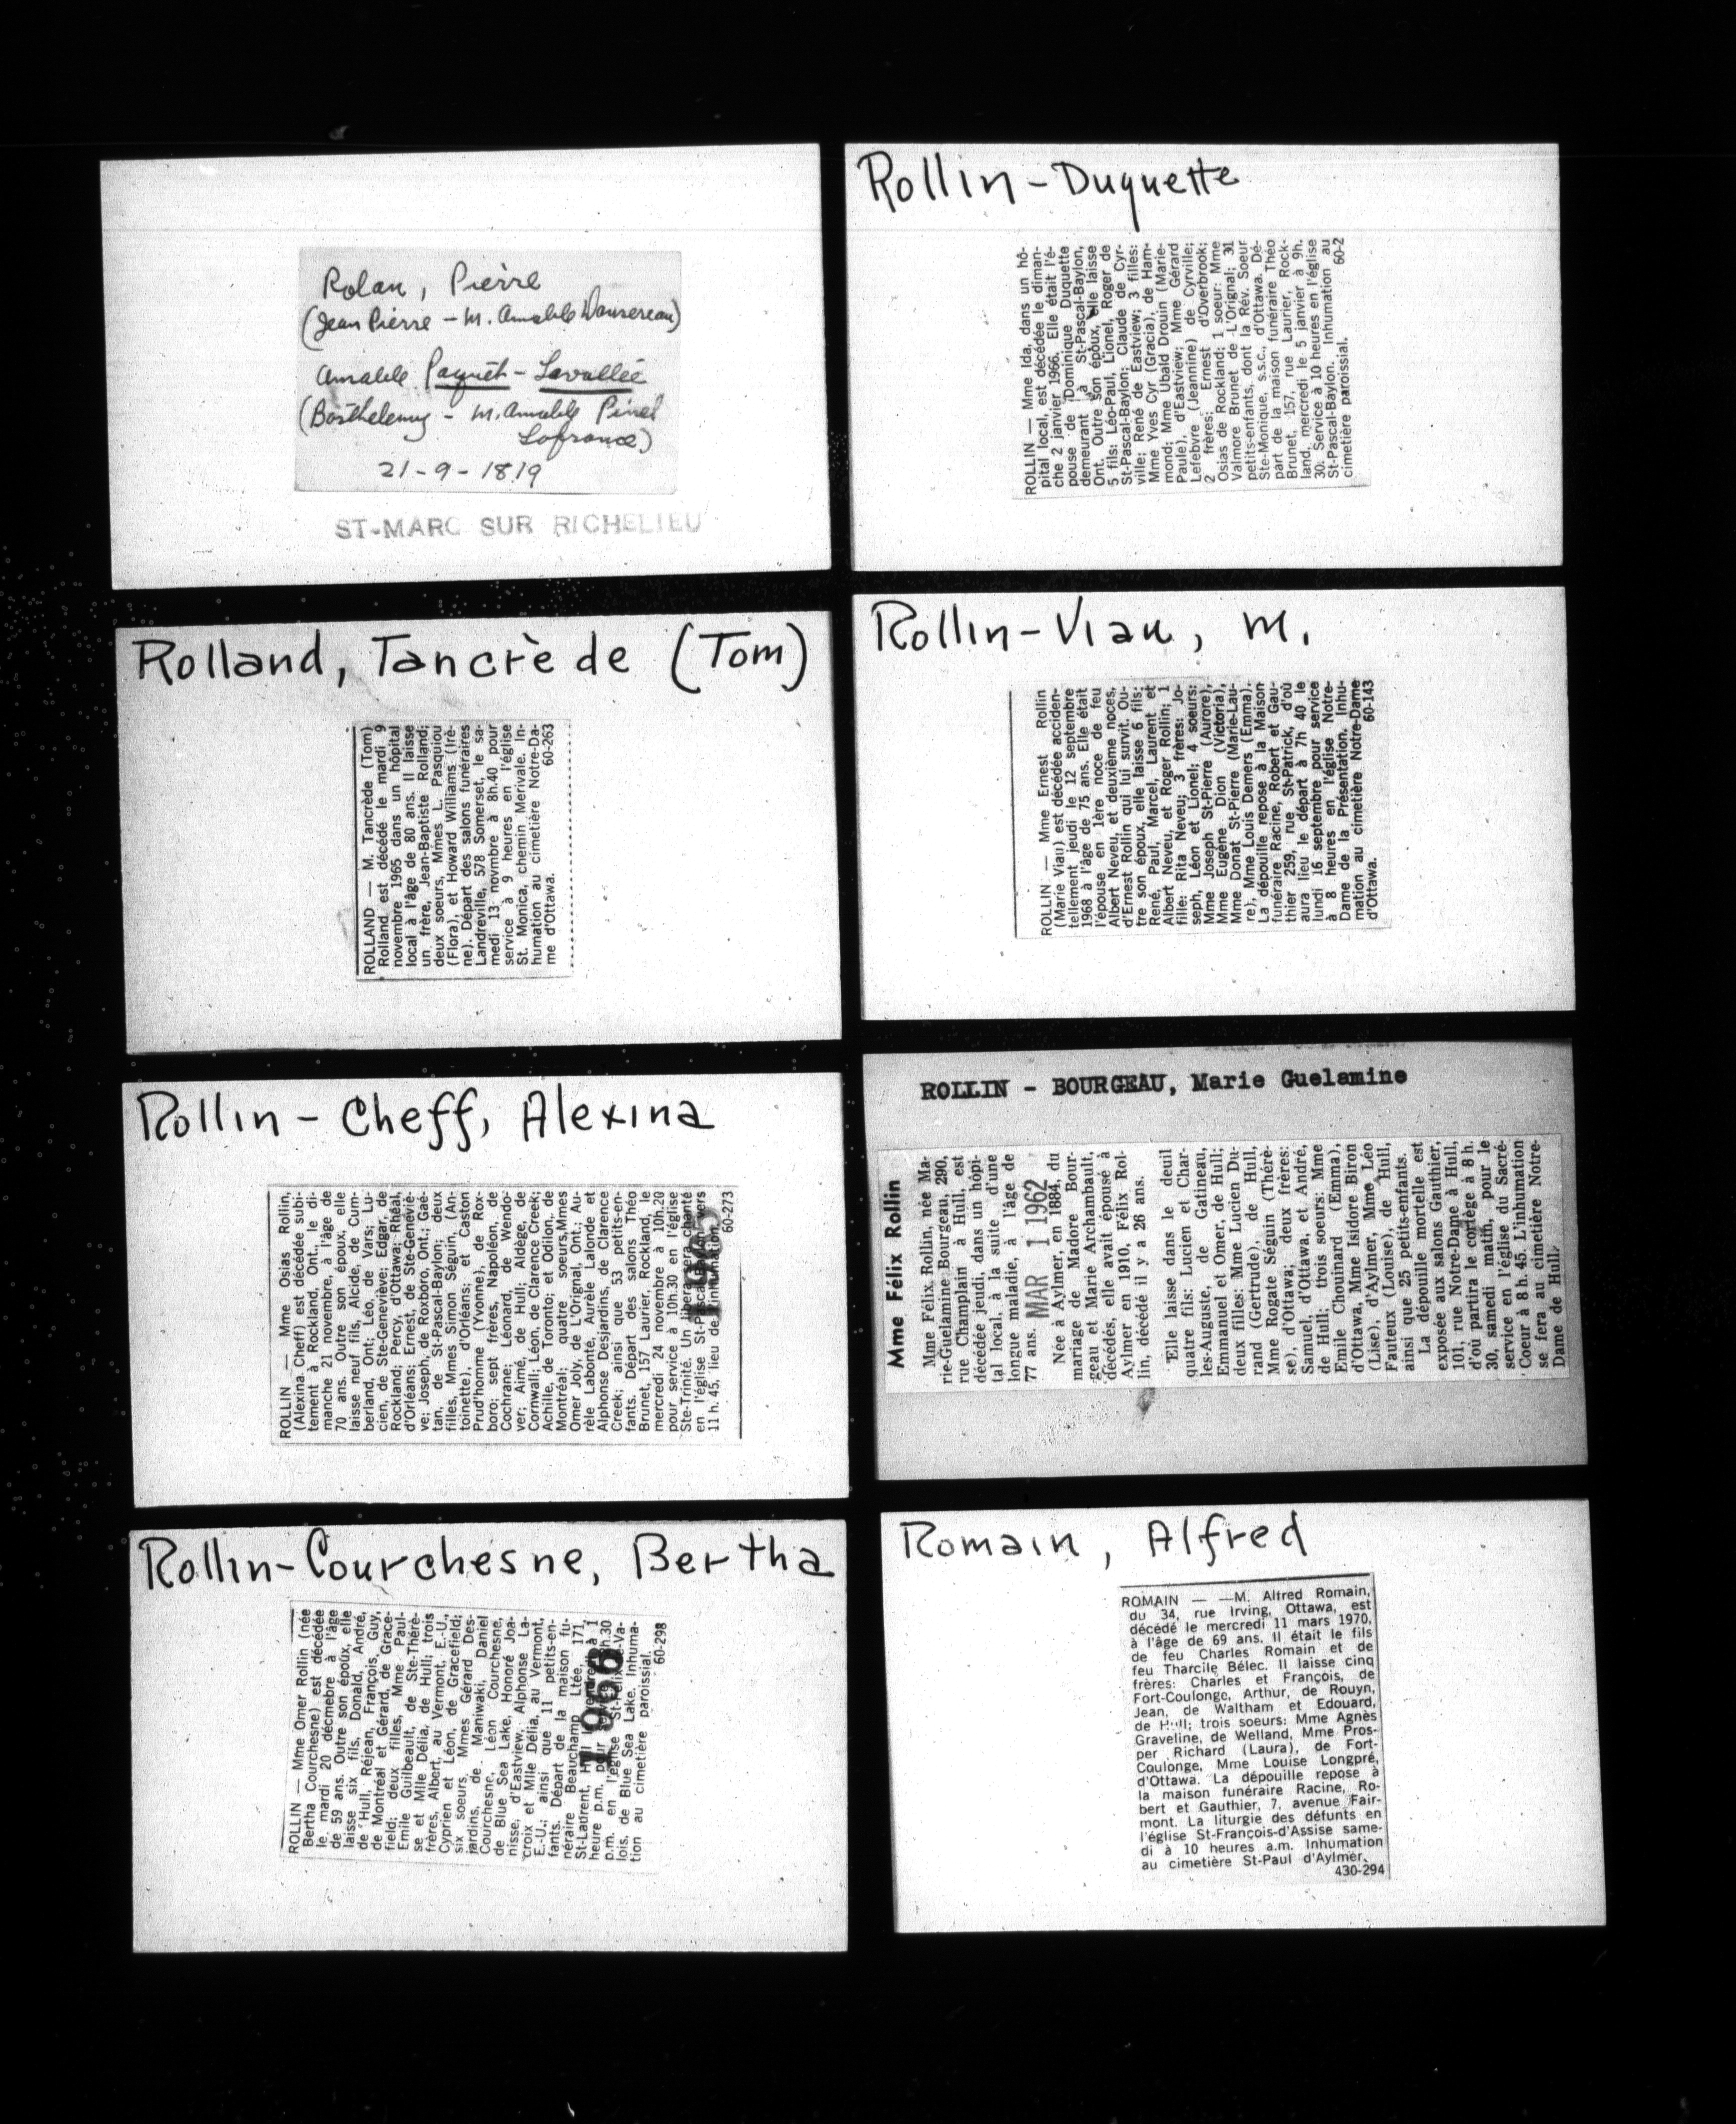 Rolan, Pierre
(Jean Pierre - M. Amable Dansereau)
Amable Paquet - Lavallée
(Barthelemy - M. Amable Pinel
Lafrance)
21-9-1819
ST-MARC SUR RICHELIEU
Rolland, Tancrède (Tom)
ROLLAND — M. Tancrède (Tom)
Rolland est décédé le mardi 9
novembre 1965 dans un hôpital
local à l'âge de 80 ans. Il laisse
un frère, Jean-Baptiste Rolland;
deux soeurs, Mmes L. Pasquiou
(Flora), et Howard Williams (Irè-
ne). Départ des salons funéraires
Landreville, 578 Somerset, le sa-
medi 13 novmbre à 8h.40 pour
service à 9 heures en l'église
St. Monica, chemin Merivale. In-
humation au cimetière Notre-Da-
me d'Ottawa. 60-263
Rollin - Cheff, Alexina
ROLLIN — Mme Osias Rollin,
(Alexina Cheff) est décédée subi-
tement à Rockland, Ont., le di-
manche 21 novembre, à l'âge de
70 ans. Outre son époux, elle
laisse neuf fils, Alcide, de Cum-
berland, Ont; Léo, de Vars; Lu-
cien, de Ste-Geneviève; Edgar, de
Rockland; Percy, d'Ottawa; Rhéal,
d'Orléans; Ernest, de Ste-Geneviè-
ve; Joseph, de Roxboro, Ont.; Gaé-
tan, de St-Pascal-Baylon; deux
filles, Mmes Simon Séguin, (An-
toinette), d'Orléans; et Caston
Prud'homme (Yvonne), de Rox-
boro; sept frères, Napoléon, de
Cochrane; Léonard, de Wendo-
ver; Aimé, de Hull; Aldège, de
Cornwall; Léon, de Clarence Creek;
Achille, de Toronto; et Odilon, de
Montréal; quatre soeurs, Mmes
Omer Joly, de L'Orignal, Ont.; Au-
rèle Labonté, Aurèle Lalonde et
Alphonse Desjardins, de Clarence
Creek; ainsi que 53 petits-en-
fants. Départ des salons Théo
Brunet, 157 Laurier, Rockland, le
mercredi 24 novembre à 10h.20
pour service à 10h.30 en l'église
Ste-Trinité. Un libera sera chanté
en l'église St-Pascal-Baylon vers
11 h. 45, lieu de l'inhumation.
60-273
1965
Rollin-Courchesne, Bertha
ROLLIN — Mme Omer Rollin (née
Bertha Courchesne) est décédée
le mardi 20 décmebre à l'âge
de 59 ans. Outre son époux, elle
laisse six fils, Donald, André,
de Hull, Réjean, François, Guy,
de Montréal et Gérard, de Grace-
field; deux filles, Mme Paul-
Emile Guilbeault, de Ste-Thérè-
se et Mlle Délia, de Hull; trois
frères, Albert, au Vermont, E.-U.,
Cyprien et Léon, de Gracefield;
six soeurs, Mmes Gérard Des-
jardins, de Maniwaki, Daniel
Courchesne, Léon Courchesne,
de Blue Sea Lake, Honoré Joa-
nisse, d'Eastview, Alphonse La-
croix et Mlle Délia, au Vermont,
E.-U.; ainsi que 11 petits-en-
fants. Départ de la maison fu-
néraire Beauchamp Ltée, 171,
St-Laurent, Hull, vendredi à 1
heure p.m. pour service 3h.30
p.m. en l'église St-Félix-de-Va-
lois, de Blue Sea Lake. Inhuma-
tion au cimetière paroissial.
60-298
1966
Rollin - Duquette
ROLLIN — Mme Ida, dans un hô-
pital local, est décédée le diman-
che 2 janvier 1966. Elle était l'é-
pouse de Dominique Duquette
demeurant à St-Pascal-Baylon,
Ont. Outre son époux, elle laisse
5 fils: Léo-Paul, Lionel, Roger de
St-Pascal-Baylon; Claude de Cyr-
ville; René de Eastview; 3 filles:
Mme Yves Cyr (Gracia), de Ham-
mond; Mme Ubald Drouin (Marie-
Paule), d'Eastview; Mme Gérard
Lefebvre (Jeannine) de Cyrville;
2 frères: Ernest d'Overbrook;
Osias de Rockland; 1 soeur: Mme
Valmore Brunet de L'Orignal; 31
petits-enfants, dont la Rév. Soeur
Ste-Monique, s.s.c., d'Ottawa. Dé-
part de la maison funéraire Théo
Brunet, 157, rue Laurier, Rock-
land, mercredi le 5 janvier à 9h.
30. Service à 10 heures en l'église
St-Pascal-Baylon. Inhumation au
cimetière paroissial. 60-2
Rollin-Viau, M.
ROLLIN — Mme Ernest Rollin
(Marie Viau) est décédée acciden-
tellement jeudi le 12 septembre
1968 à l'âge de 75 ans. Elle était
l'épouse en 1ère noce de feu
Albert Neveu, et deuxième noces,
d'Ernest Rollin qui lui survit. Ou-
tre son époux, elle laisse 6 fils:
René, Paul, Marcel, Laurent et
Albert Neveu, et Roger Rollin; 1
fille: Rita Neveu; 3 frères: Jo-
seph, Léon et Lionel; 4 soeurs:
Mme Joseph St-Pierre (Aurore),
Mme Eugène Dion (Victoria),
Mme Donat St-Pierre (Marie-Lau-
re), Mme Louis Demers (Emma).
La dépouille repose à la Maison
funéraire Racine, Robert et Gau-
thier 259, rue St-Patrick, d'où
aura lieu le départ à 7h 40 le
lundi 16 septembre pour service
à 8 heures en l'église Notre-
Dame de la Présentation. Inhu-
mation au cimetière Notre-Dame
d'Ottawa. 60-143
ROLLIN - BOURGEAU, Marie Guelamine
Mme Félix Rollin
Mme Félix Rollin, née Ma-
rie-Guelamine Bourgeau, 290,
rue Champlain à Hull, est
décédée jeudi, dans un hôpi-
tal local, à la suite d'une
longue maladie, à l'âge de
77 ans. MAR 1 1962
Née à Aylmer, en 1884, du
mariage de Madore Bour-
geau et Marie Archambault,
décédés, elle avait épousé à
Aylmer en 1910, Félix Rol-
lin, décédé il y a 26 ans.
Elle laisse dans le deuil
quatre fils: Lucien et Char-
les-Auguste, de Gatineau,
Emmanuel et Omer, de Hull;
deux filles: Mme Lucien Du-
rand (Gertrude), de Hull,
Mme Rogate Séguin (Thérè-
se), d'Ottawa; deux frères:
Samuel, d'Ottawa, et André,
de Hull; trois soeurs: Mme
Emile Chouinard (Emma),
d'Ottawa, Mme Isidore Biron
(Lise), d'Aylmer, Mme Léo
Fauteux (Louise), de Hull,
ainsi que 25 petits-enfants.
La dépouille mortelle est
exposée aux salons Gauthier,
101, rue Notre-Dame à Hull,
d'où partira le cortège à 8 h.
30, samedi matin, pour le
service en l'église du Sacré-
Coeur à 8 h. 45. L'inhumation
se fera au cimetière Notre-
Dame de Hull.
Romain, Alfred
ROMAIN — —M. Alfred Romain,
du 34, rue Irving, Ottawa, est
décédé le mercredi 11 mars 1970,
à l'âge de 69 ans. Il était le fils
de feu Charles Romain et de
feu Tharcile Bélec. Il laisse cinq
frères: Charles et François, de
Fort-Coulonge, Arthur, de Rouyn,
Jean, de Waltham et Edouard,
de Hull; trois soeurs: Mme Agnès
Graveline, de Welland, Mme Pros-
per Richard (Laura), de Fort-
Coulonge, Mme Louise Longpré,
d'Ottawa. La dépouille repose à
la maison funéraire Racine, Ro-
bert et Gauthier, 7, avenue Fair-
mont. La liturgie des défunts en
l'église St-François-d'Assise same-
di à 10 heures a.m. Inhumation
au cimetière St-Paul d'Aylmer.
430-294